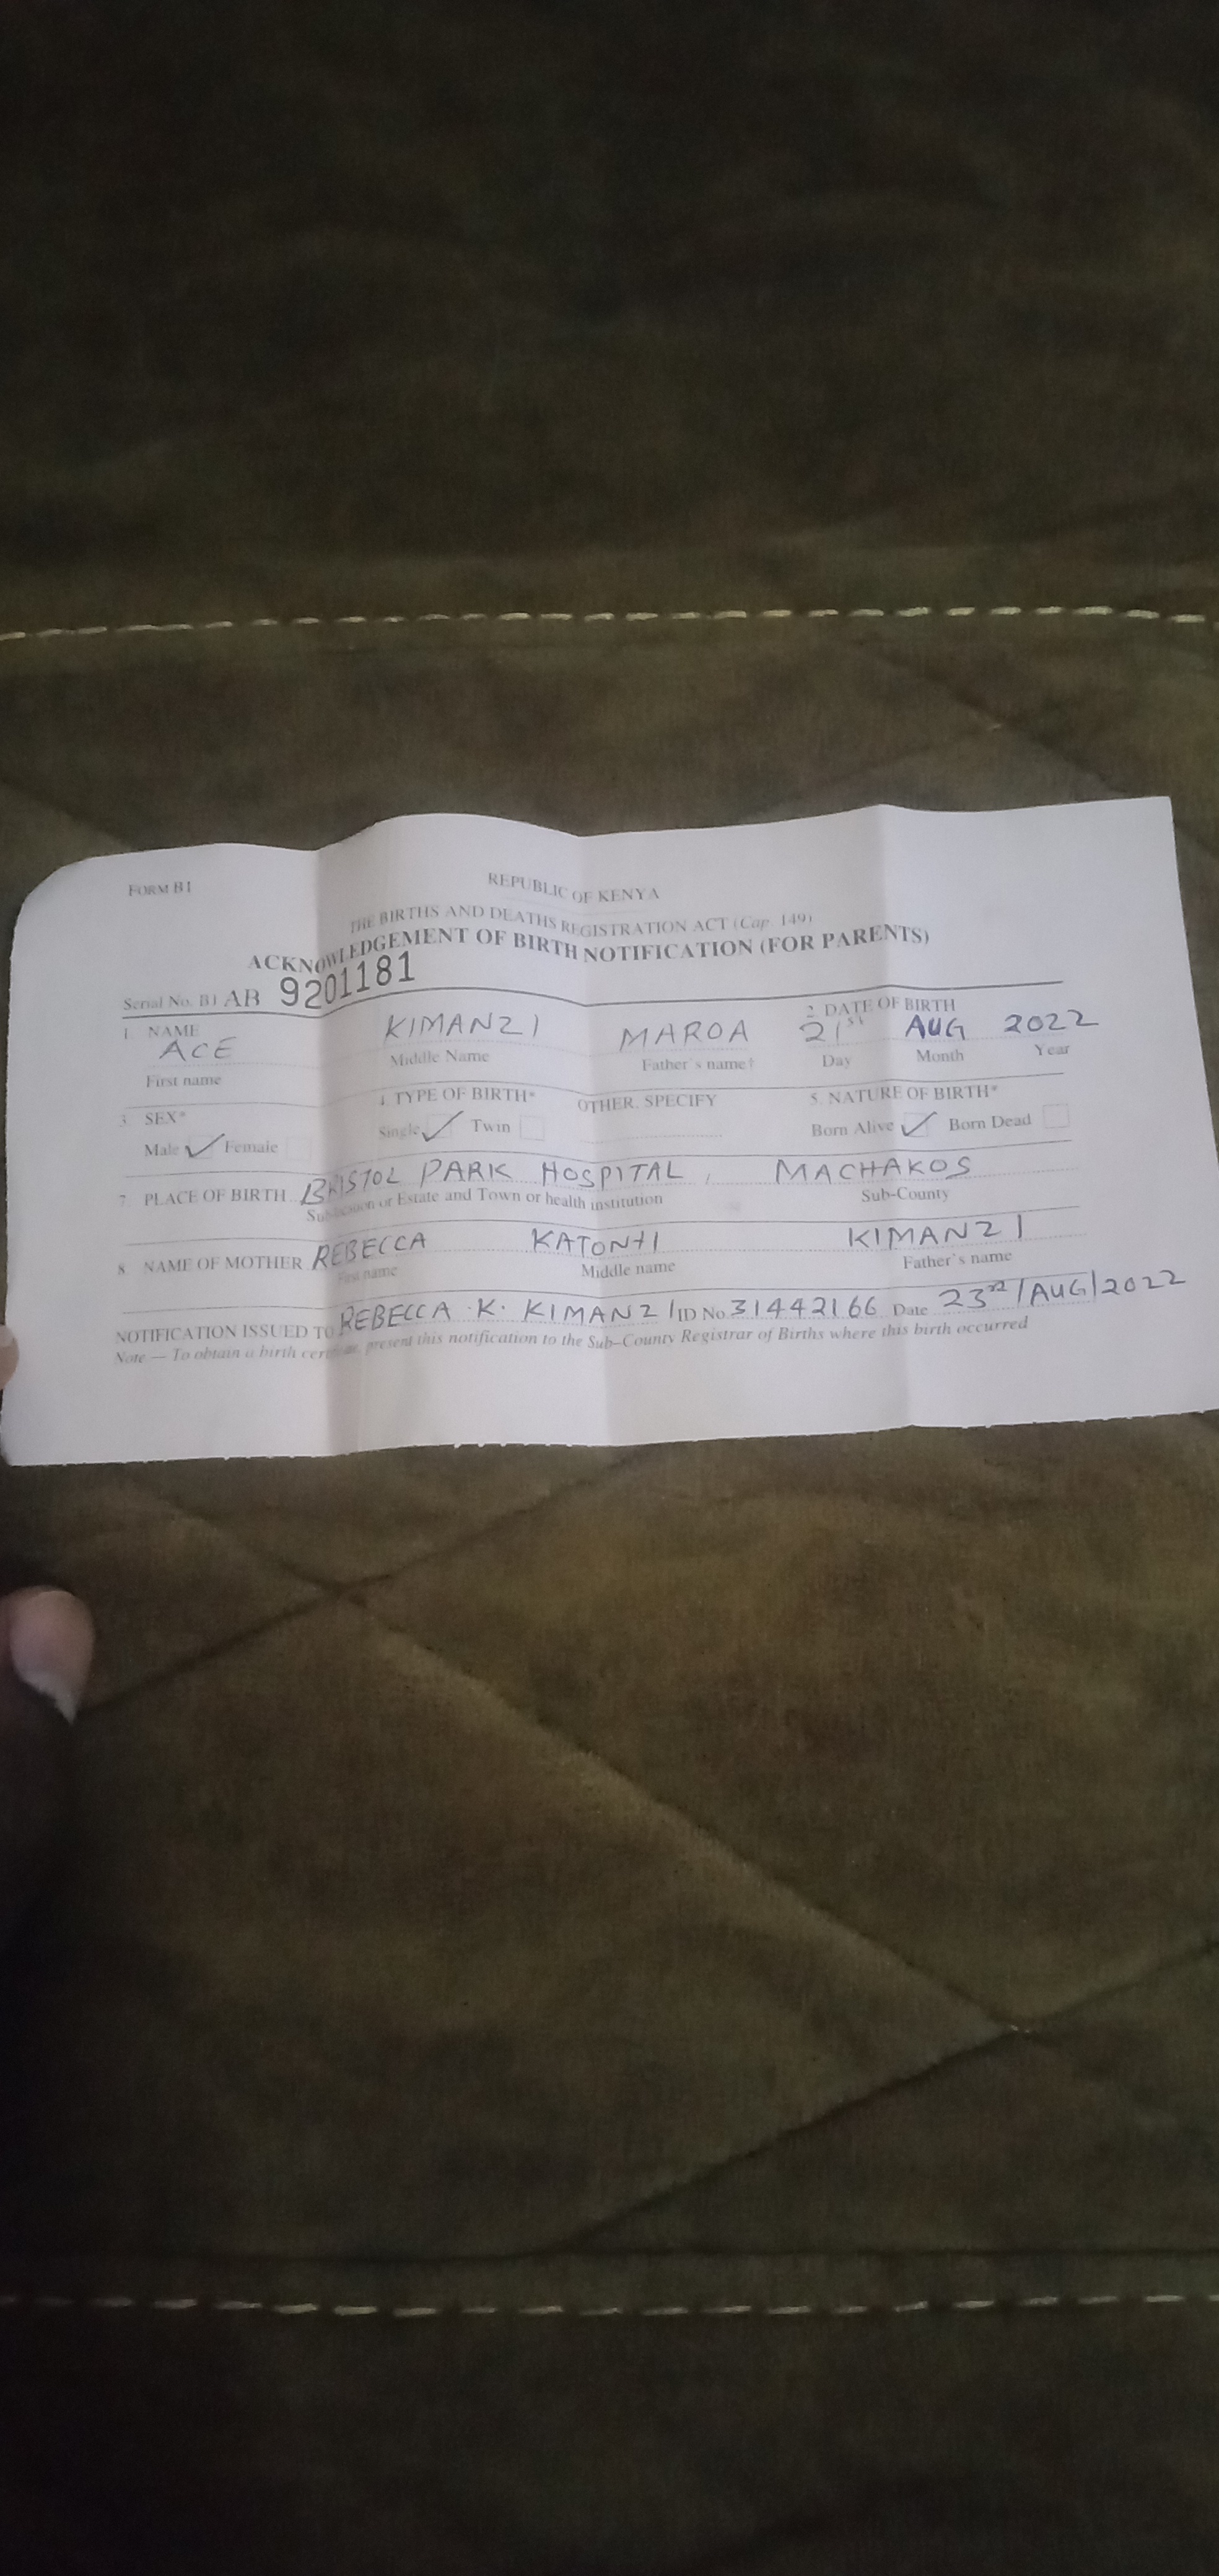 FORM B1
REPUBLIC OF KENYA
THE BIRTHS AND DEATHS REGISTRATION ACT (Cap. 149)
ACKNOWLEDGEMENT OF BIRTH NOTIFICATION (FOR PARENTS)
Serial No. B1 AB 9201181
1. NAME ACE KIMANZI MAROA
First name Middle Name Father's name†
2. DATE OF BIRTH
21st AUG 2022
Day Month Year
3. SEX*
Male ✓ Female
4. TYPE OF BIRTH*
Single ✓ Twin
OTHER, SPECIFY
5. NATURE OF BIRTH*
Born Alive ✓ Born Dead
7. PLACE OF BIRTH BRISTOL PARK HOSPITAL, MACHAKOS
Sub-location or Estate and Town or health institution Sub-County
8. NAME OF MOTHER REBECCA KATONHI KIMANZI
First name Middle name Father's name
NOTIFICATION ISSUED TO REBECCA K. KIMANZI ID No 31442166 Date 23rd/AUG/2022
Note — To obtain a birth certificate, present this notification to the Sub-County Registrar of Births where this birth occurred